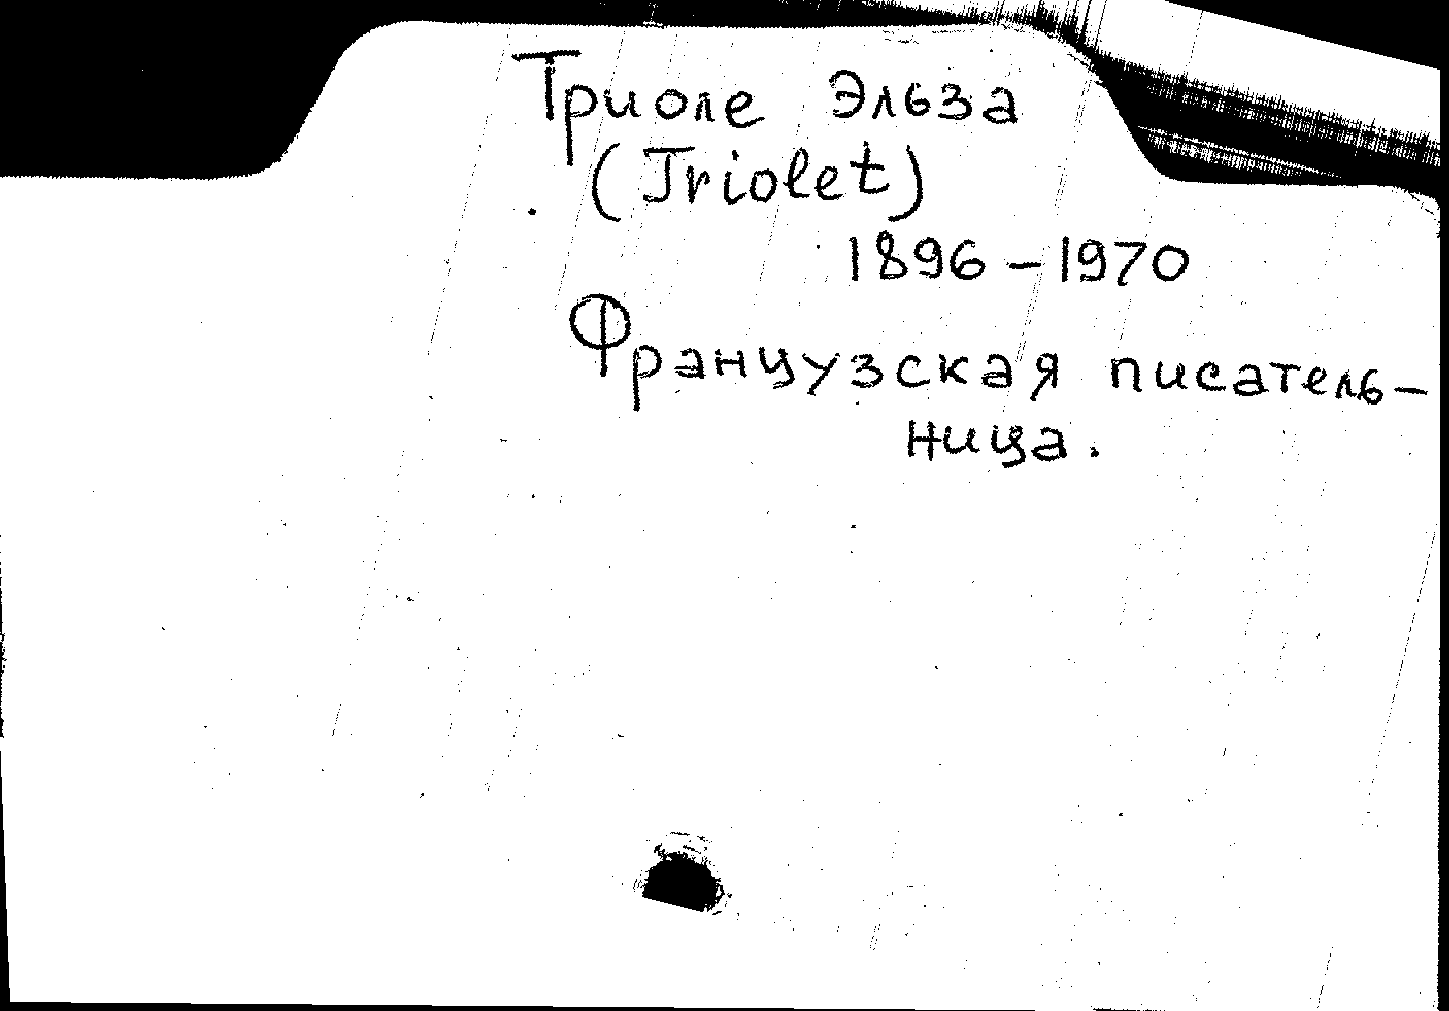 Триоле Эльза
(Triolet)
1896-1970
Французская писатель-
ница.